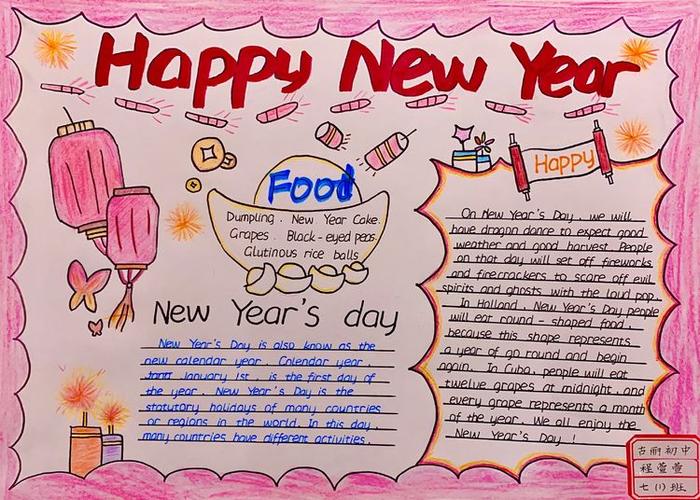 Happy New Year
Food
Dumpling . New Year Cake.
Grapes . Black-eyed peas.
Glutinous rice balls
New Year's day
New Year's Day is also know as the
new calendar year . Calendar year
January 1st , is the first day of
the year . New Year's Day is the
statutory holidays of many countries
or regions in the world. In this day ,
many countries have different activities.
Happy
On New Year's Day , we will
have dragon dance to expect good
weather and good harvest. People
on that day will set off fireworks
and firecrackers to scare off evil
spirits and ghosts with the loud pop.
In Holland , New Year's Day people
will ear round - shaped food ,
because this shape represents
a year of go round and begin
again. In Cuba , people will eat
twelve grapes at midnight , and
every grape represents a month
of the year . We all enjoy the
New Year's Day !
古丽初中
程萱萱
七(1)班